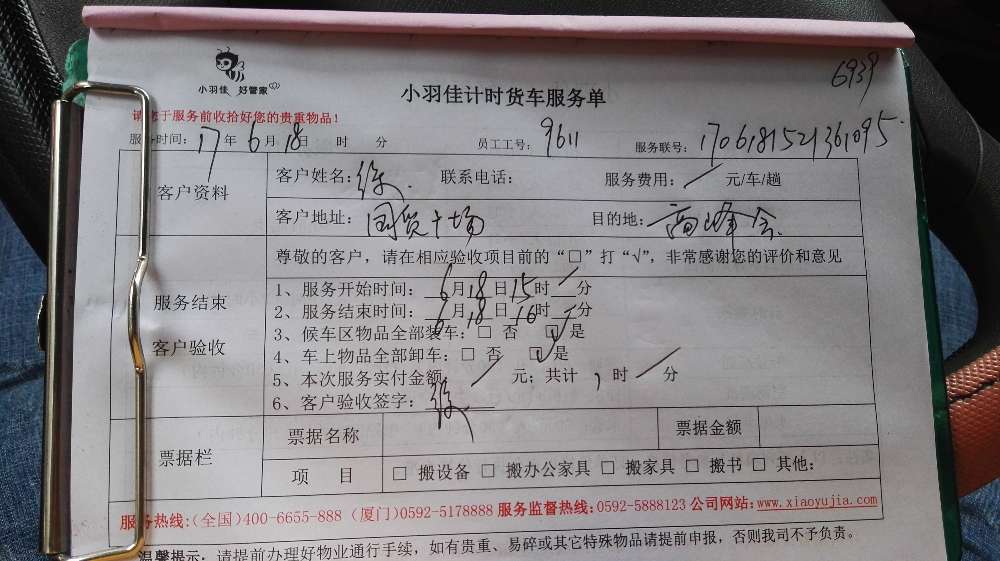 6939
小羽佳 好管家
小羽佳计时货车服务单
请您于服务前收拾好您的贵重物品！
服务时间：17年6月18日 时 分 员工工号：9611 服务联号：1706181521361095
客户资料
客户姓名：徐 联系电话： 服务费用：/ 元/车/趟
客户地址：国贸广场 目的地：高峰会
服务结束
客户验收
尊敬的客户，请在相应验收项目前的“□”打“√”，非常感谢您的评价和意见
1、服务开始时间：6月18日15时/分
2、服务结束时间：6月18日16时/分
3、候车区物品全部装车：□ 否 ☑ 是
4、车上物品全部卸车：□ 否 ☑ 是
5、本次服务实付金额 / 元；共计 1 时 / 分
6、客户验收签字：徐
票据栏
票据名称 票据金额
项 目 □ 搬设备 □ 搬办公家具 □ 搬家具 □ 搬书 □ 其他：
服务热线：（全国）400-6655-888（厦门）0592-5178888 服务监督热线：0592-5888123 公司网站：www.xiaoyujia.com
温馨提示：请提前办理好物业通行手续，如有贵重、易碎或其它特殊物品请提前申报，否则我司不予负责。